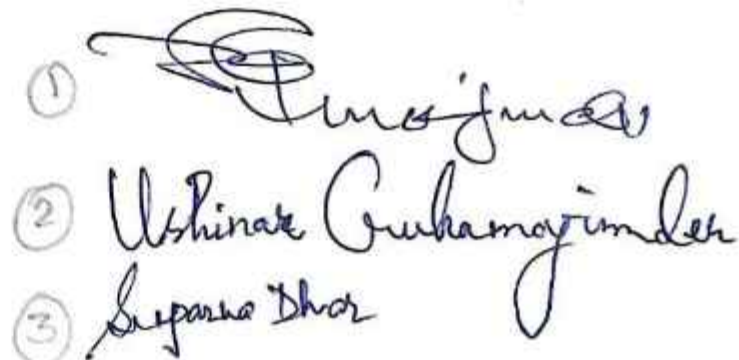 ①
② Ushinar Guhamajumder
③ Suparna Dhar